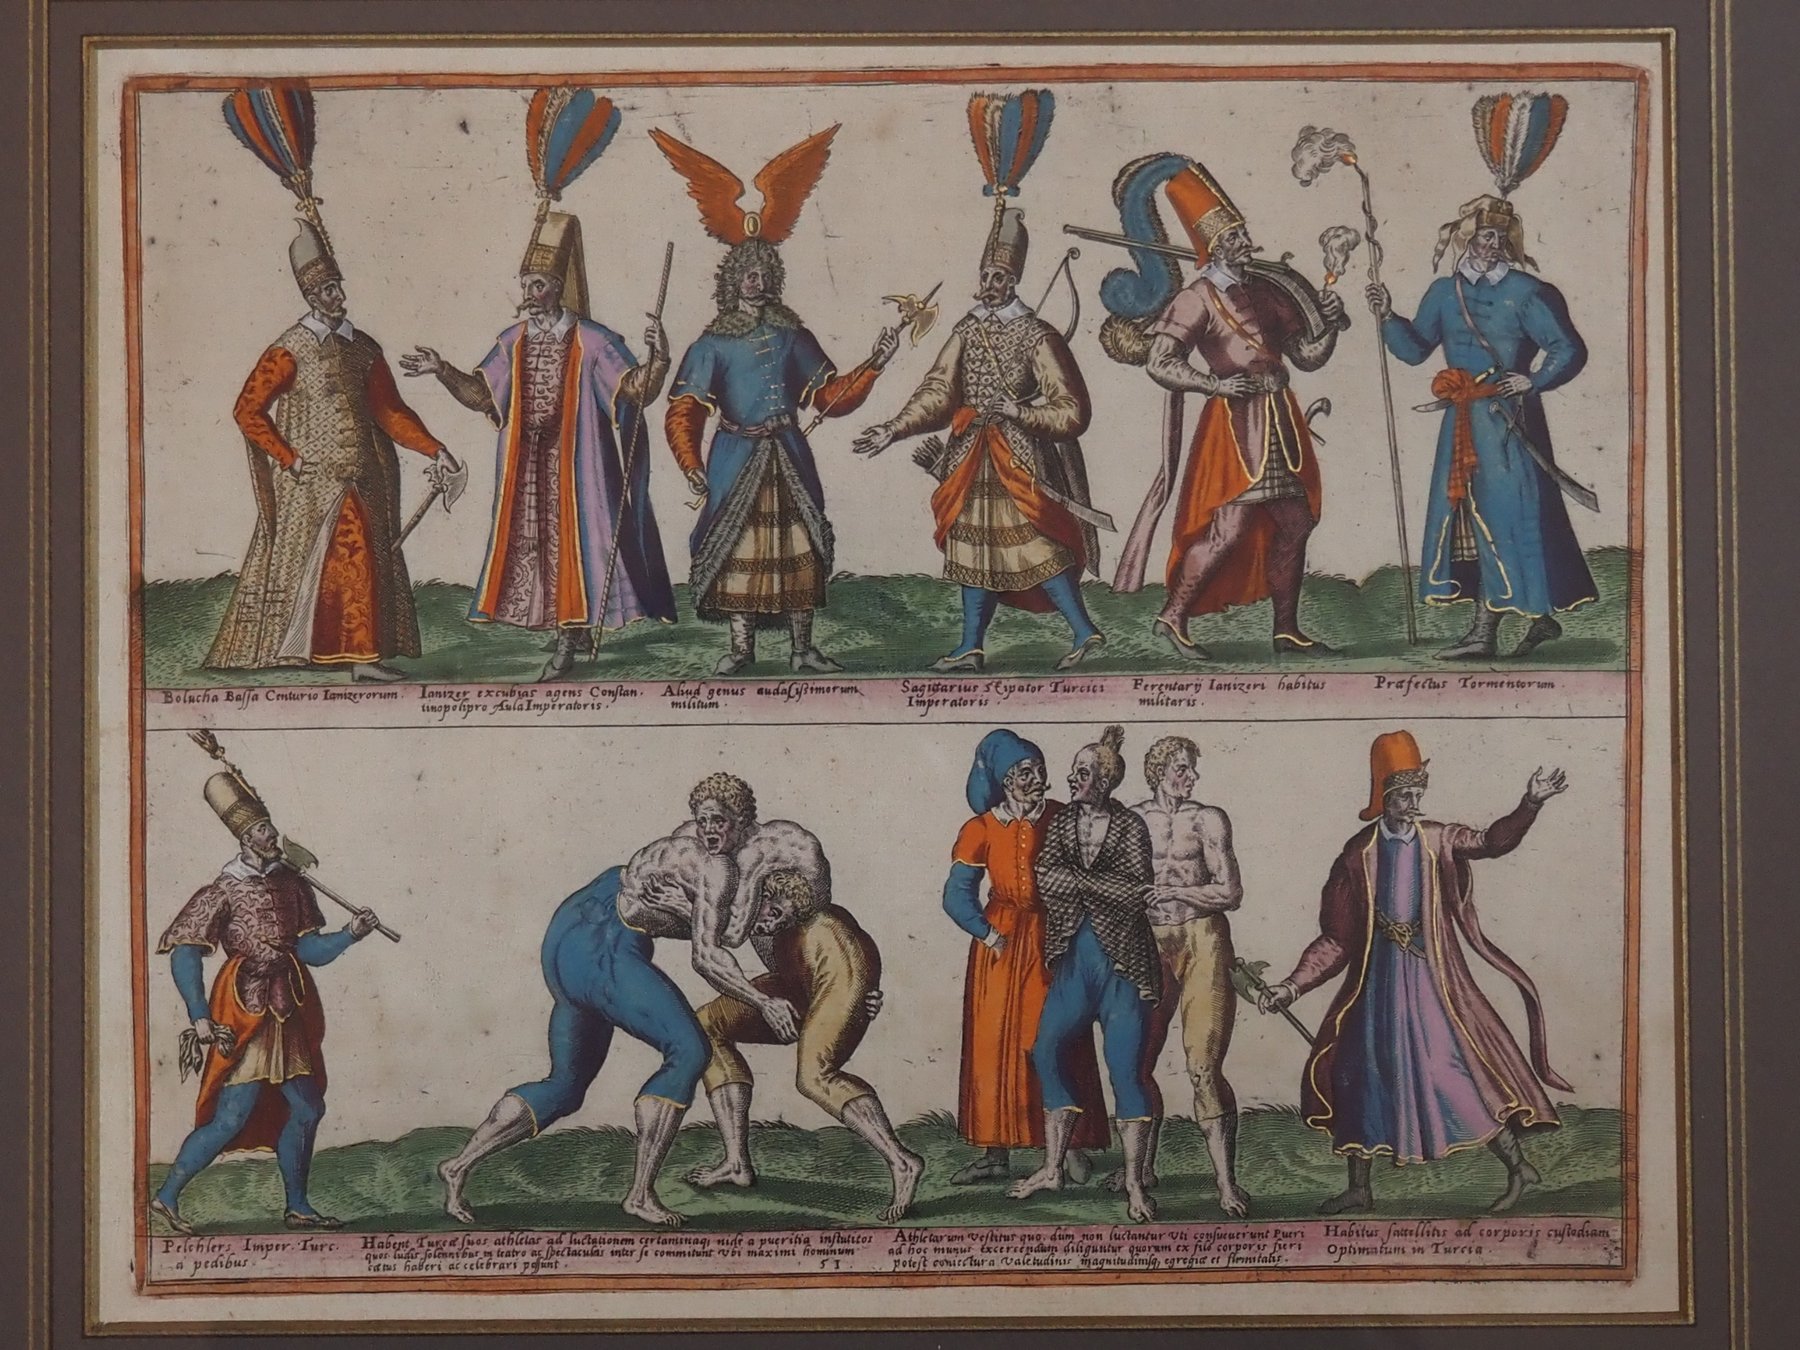 Bolucha Bassa Centurio Ianizerorum.
Ianizer excubias agens Constan.
tinopoli pro Aula Imperatoris.
Aliud genus audasissimorum
militum.
Sagittarius Stipator Turcici
Imperatoris.
Ferentarij Ianizeri habitus
militaris.
Præfectus Tormentorum.
Pelchlers Imper. Turc.
a pedibus.
Habent Turcæ suos athletas ad luctationem certaminaq; inde a pueritia institutos
quos ludis solennibus in teatro ac spectaculas inter se committunt Vbi maximi hominum
cœtus haberi ac celebrari possunt.
51.
Athletarum vestitus quo. dum non luctantur Vti consueuerunt Pueri
ad hoc munus excercendum diliguntur quorum ex filo corporis fieri
potest coniectura Valetudinis magnitudinisq; egregiæ et firmitatis.
Habitus satellitis ad corporis custodiam
Optimatum in Turcia.